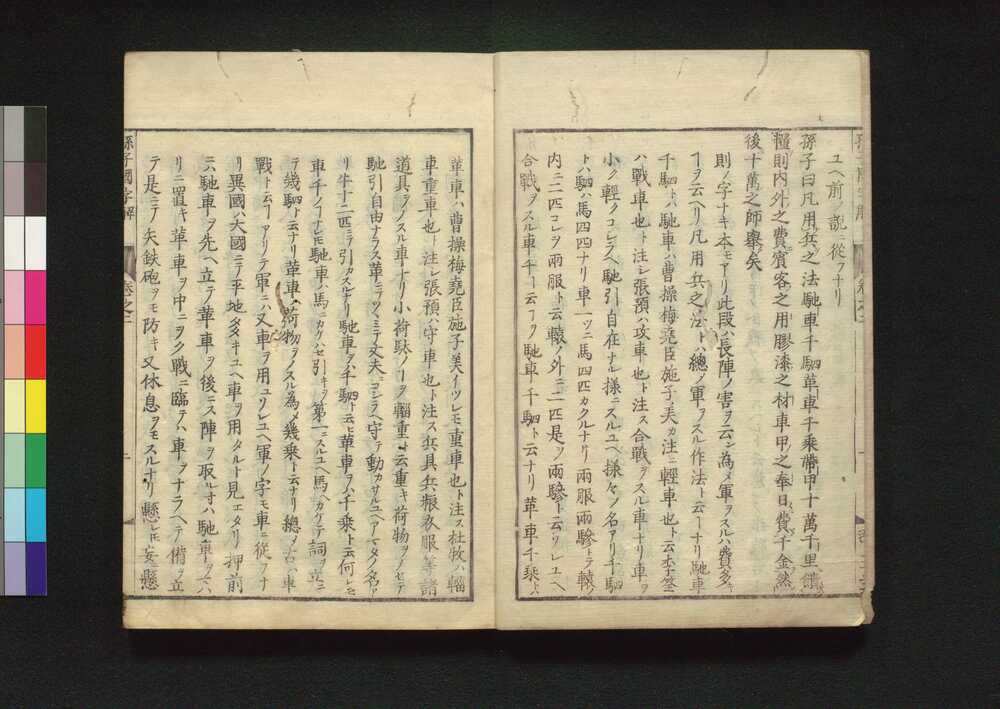 ユヘ前ノ説ニ從フナリ
孫子曰凡用兵之法馳車千駟革車千乘帶甲十萬千里饋
糧則內外之費賓客之用膠漆之材車甲之奉日費千金然
後十萬之師擧矣
則ノ字ナキ本モアリ此段ハ長陣ノ害ヲ云ン為メ軍ヲスルハ費多キ
ヿヲ云ヘリ凡用兵之法トハ總メ軍ヲスル作法ト云ヿナリ馳車
千駟トハ馳車ハ曹操梅堯臣施子美カ注ニ輕車也ト云李筌
ハ戰車也ト注シ張預ハ攻車也ト注ス合戰ヲスル車ナリ車ヲ
小ク輕クコシラヘ馳引自在ナル樣ニスルユヘ樣々ノ名アリ千駟
トハ駟ハ馬四疋ナリ車一ツニ馬四匹カクルナリ兩服兩驂トテ轅ノ
內ニ二匹コレヲ兩服ト云轅ノ外ニ二匹是ヲ兩驂ト云ソレユヘ
合戰ヲスル車千ト云ヿヲ馳車千駟ト云ナリ革車千乘トハ
革車ハ曹操梅堯臣施子美イツレモ重車也ト注ス杜牧ハ輜
車重車也ト注シ張預ハ守車也ト注ス兵具兵粮衣服等諸
道具ヲノスル車ナリ小荷駄ノヿヲ輜重ト云重キ荷物ヲノセテ
馳引自由ナラス革ニテツヽミテ丈夫ニコシラヘ守テ動カサルユヘアマタノ名ア
リ牛十二匹ニテ引カスルナリ馳車ヲハ千駟ト云ヒ革車ヲハ千乘ト云何レモ
車千ノヿナレモ馳車ハ馬ニカケハセ引キヲ第一ニスルユヘ馬ヘカケテ詞ヲ立
テ幾駟ト云ナリ革車ハ荷物ヲノスル為メ幾乘ト云ナリ總メ古ハ車
戰ト云ヿアリテ軍ニハ又車ヲ用ユソレユヘ軍ノ字モ車ニ從フナ
リ異國ハ大國ニテ平地多キユヘ車ヲ用タルト見エタリ押前
ニハ馳車ヲ先ヘ立テ革車ヲ後ニス陣ヲ取ルオハ馳車ヲハ
リニ置キ革車ヲ中ニヲク戰ニ臨テハ車ヲナラヘテ備ヲ立
テ是ニテ矢鉄砲ヲモ防キ又休息ヲモスルナリ懸レモ妄ニ懸
孫子國字解
卷之二